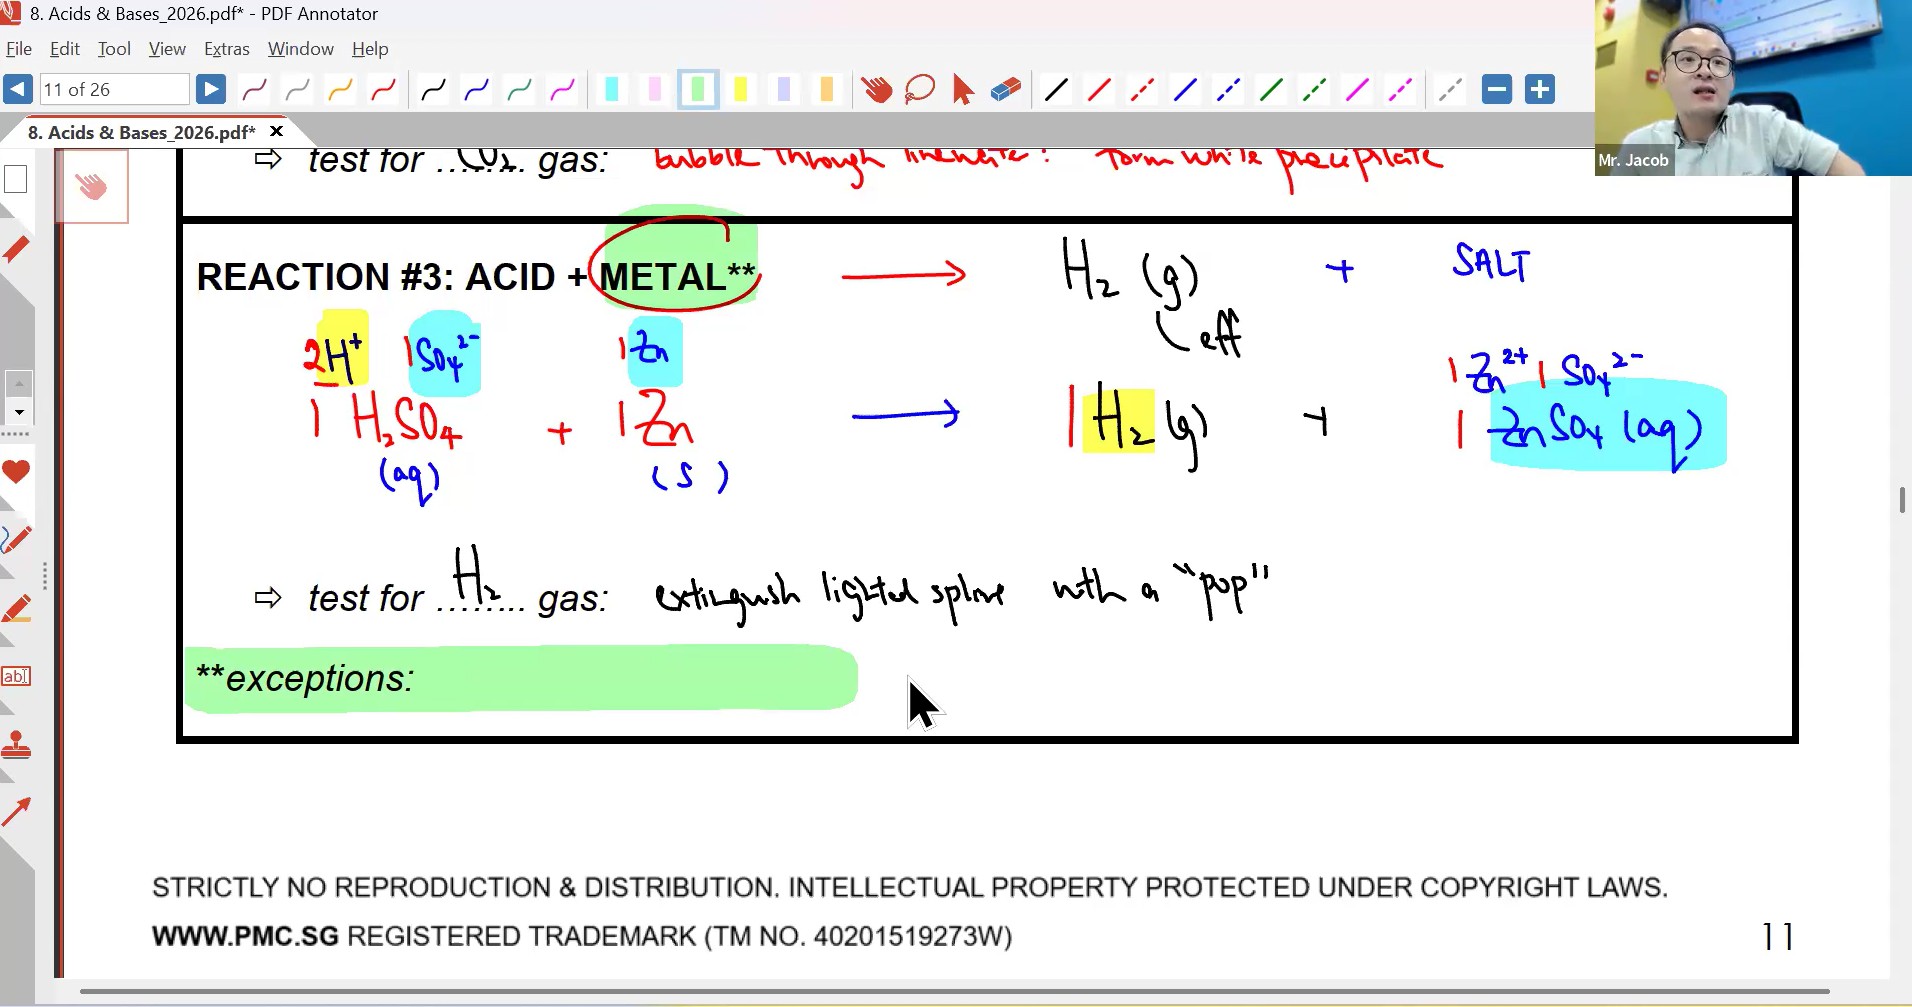 8. Acids & Bases_2026.pdf* - PDF Annotator
File Edit Tool View Extras Window Help
11 of 26
8. Acids & Bases_2026.pdf*
Mr. Jacob
⇨ test for ........ gas: bubble through limewater: form white precipitate
REACTION #3: ACID + METAL** → H₂ (g) + SALT
eff
2H⁺ 1SO₄²⁻ 1Zn 1Zn²⁺ 1SO₄²⁻
1 H₂SO₄ + 1Zn → 1 H₂ (g) + 1 ZnSO₄ (aq)
(aq) (s)
⇨ test for H₂ ........ gas: extinguish lighted splint with a "pop"
**exceptions:
STRICTLY NO REPRODUCTION & DISTRIBUTION. INTELLECTUAL PROPERTY PROTECTED UNDER COPYRIGHT LAWS.
WWW.PMC.SG REGISTERED TRADEMARK (TM NO. 40201519273W)
11